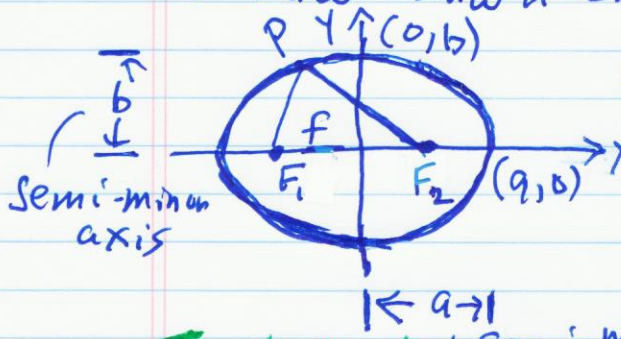 P Y (0,b)
b
f
F₁ F₂ (a,0)
Semi-minor
axis
|← a →|